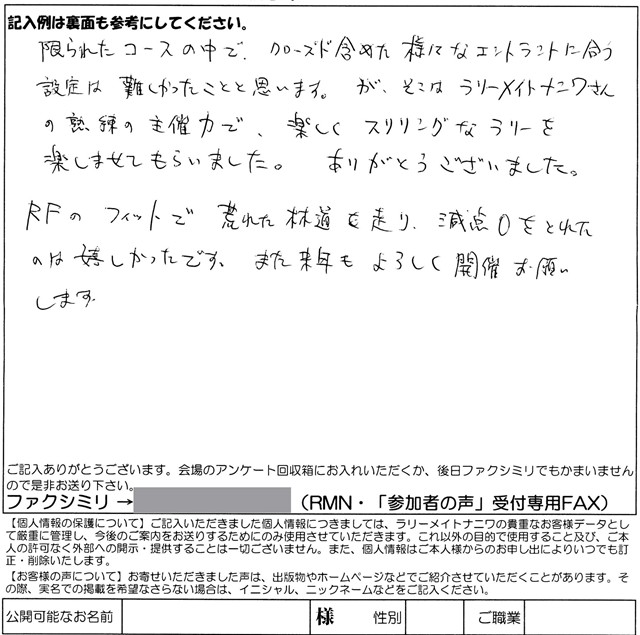 記入例は裏面も参考にしてください。
限られたコースの中で、クローズド含めた様々なエントラントに合う
設定は 難しかったことと思います。が、そこは ラリーメイトナニワさん
の熟練の主催力で、楽しく スリリングな ラリーを
楽しませてもらいました。 ありがとうございました。
RFの フィットで 荒れた林道を走り、減点0をとれた
のは嬉しかったです、また来年も よろしく 開催お願い
します
ご記入ありがとうございます。会場のアンケート回収箱にお入れいただくか、後日ファクシミリでもかまいません
ので是非お送り下さい。
ファクシミリ → (RMN・「参加者の声」受付専用FAX)
【個人情報の保護について】ご記入いただきました個人情報につきましては、ラリーメイトナニワの貴重なお客様データとし
て厳重に管理し、今後のご案内をお送りするためにのみ使用させていただきます。これ以外の目的で使用すること及び、ご本
人の許可なく外部への開示・提供することは一切ございません。また、個人情報はご本人様からのお申し出によりいつでも訂
正・削除いたします。
【お客様の声について】お寄せいただきました声は、出版物やホームページなどでご紹介させていただくことがあります。そ
の際、実名での掲載を希望なさらない場合は、イニシャル、ニックネームなどをご記入ください。
公開可能なお名前 様 性別 ご職業